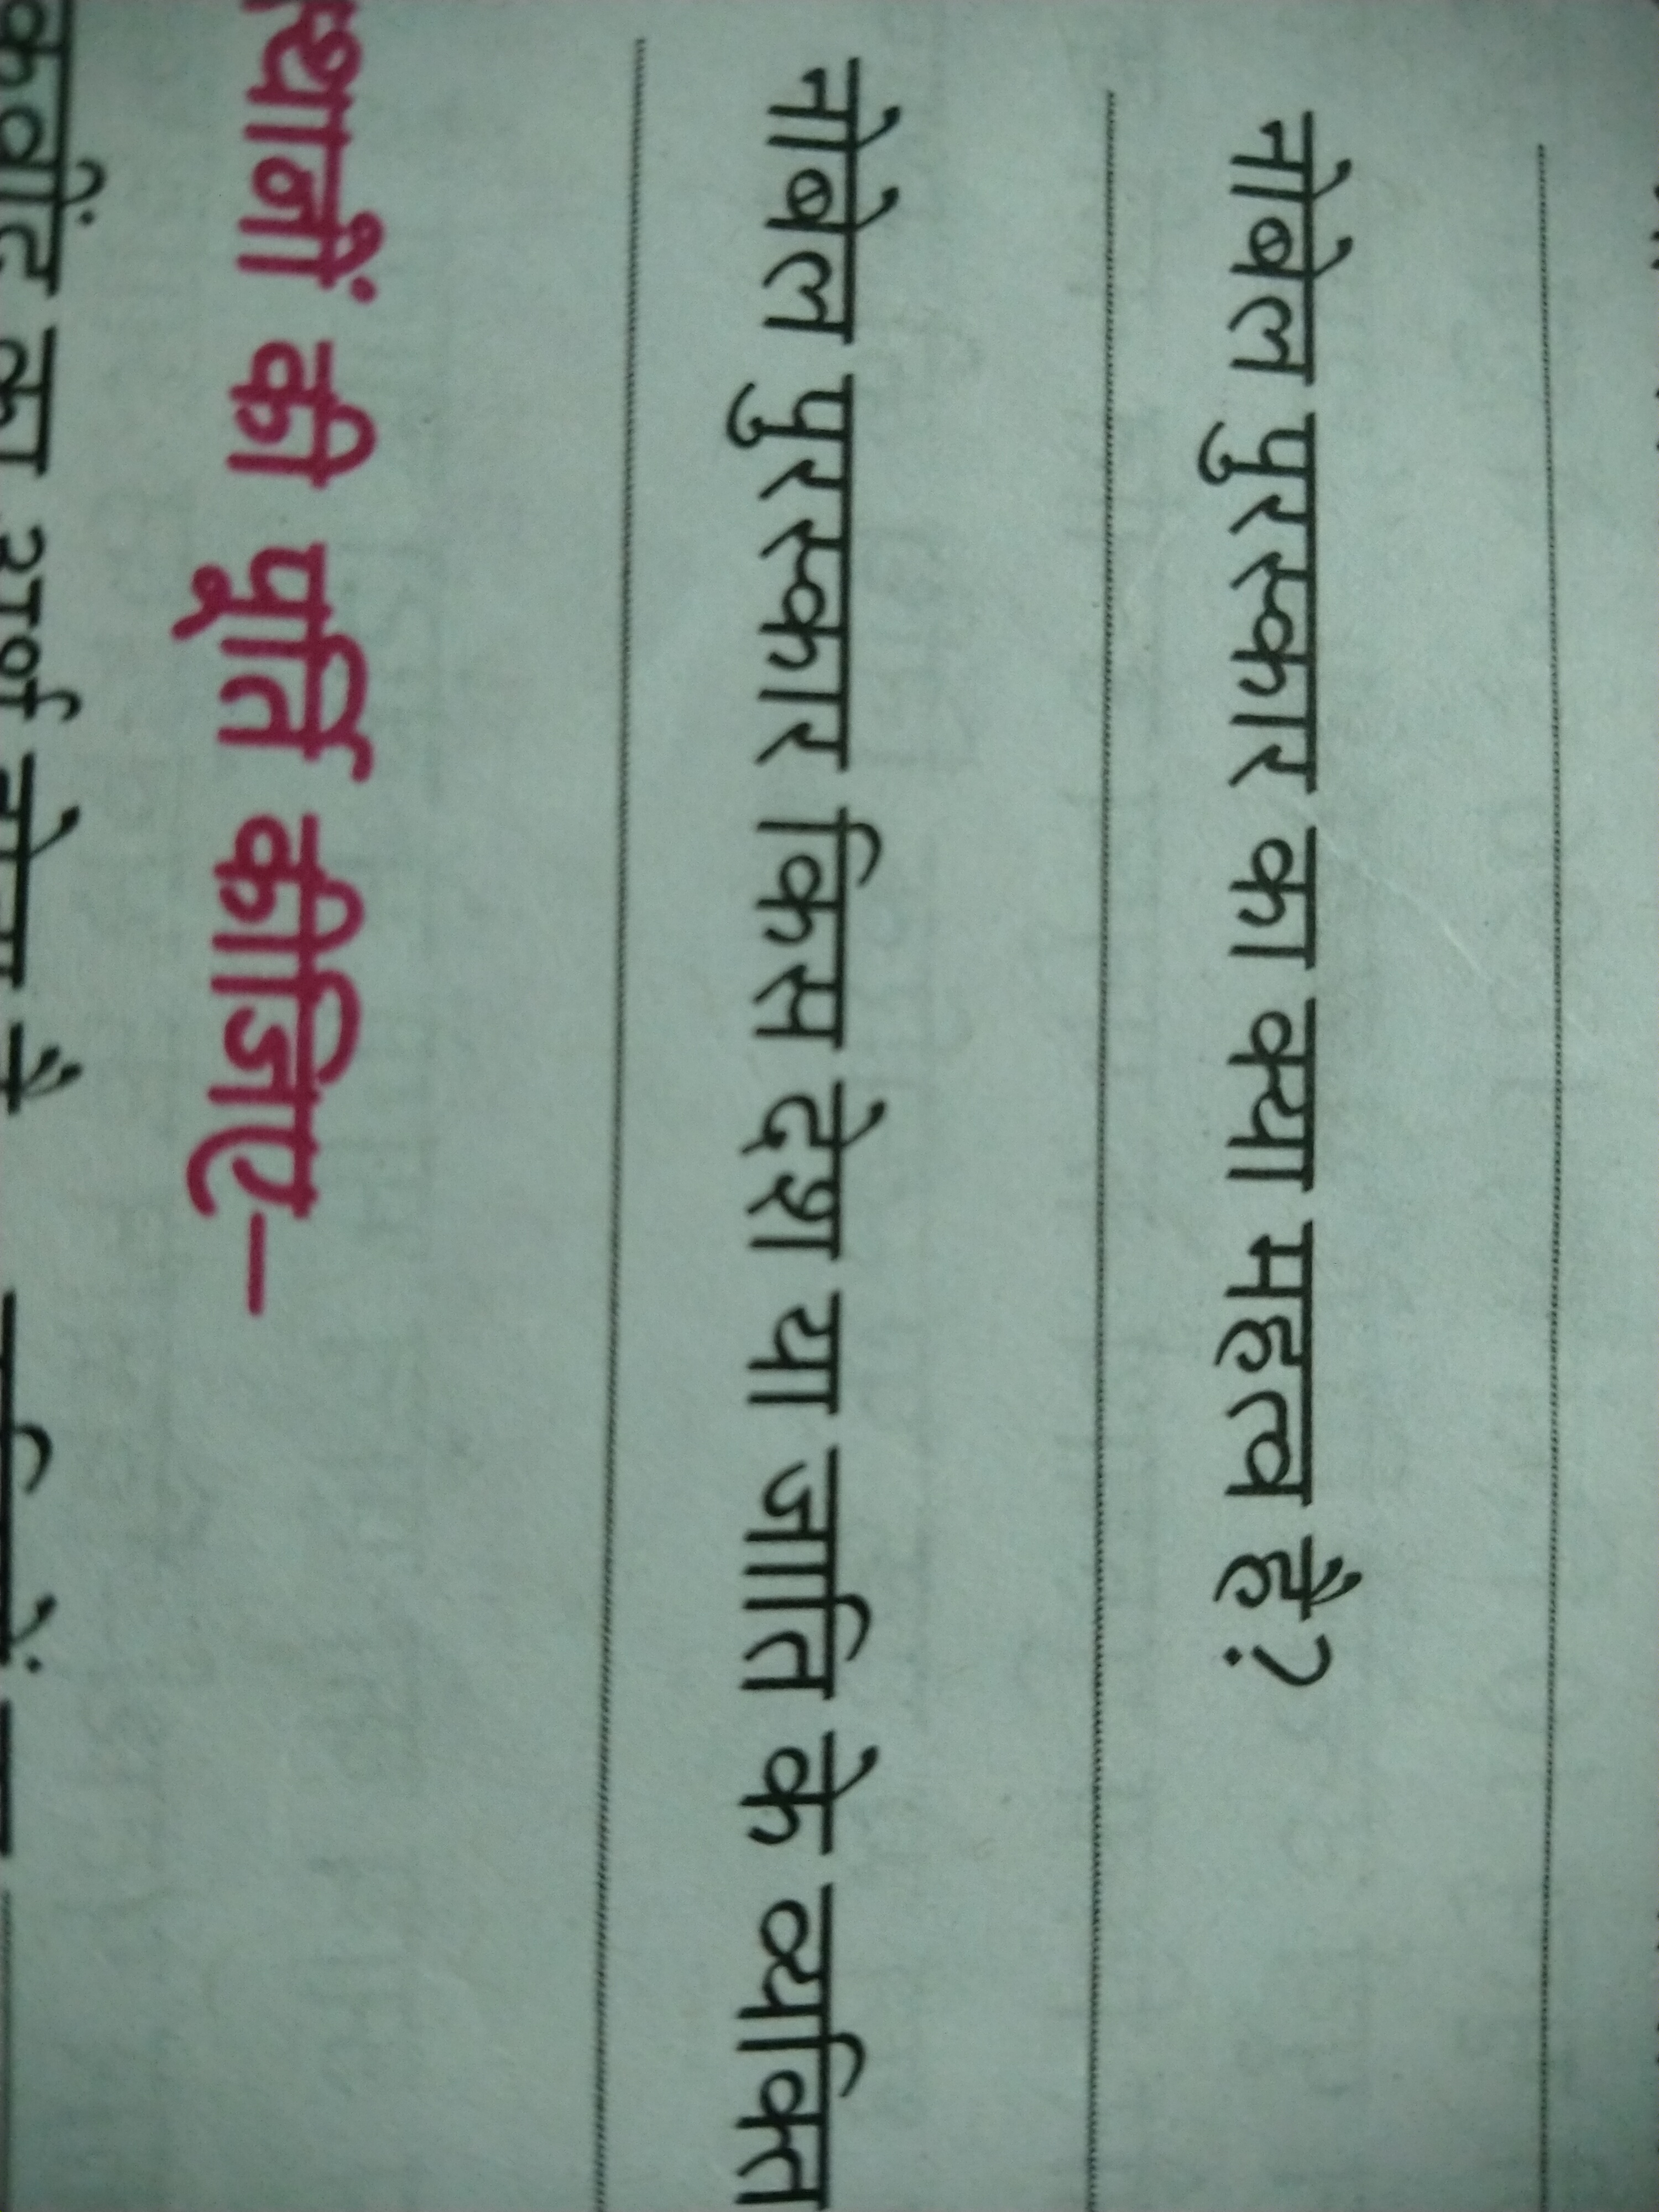 नोबेल पुरस्कार का क्या महत्व है?
नोबेल पुरस्कार किस देश या जाति के व्यक्ति
स्थानों की पूर्ति कीजिए–